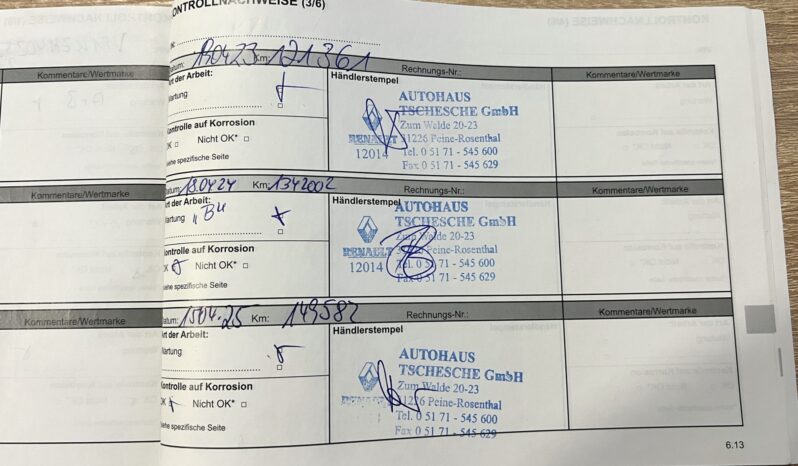 KONTROLLNACHWEISE (3/6)
Datum: 190423 Km: 121361
Kommentare/Wertmarke
Art der Arbeit:
Wartung
Kontrolle auf Korrosion
OK □ Nicht OK* □
Siehe spezifische Seite
Rechnungs-Nr.:
Händlerstempel
AUTOHAUS
TSCHESCHE GmbH
Zum Walde 20-23
RENAULT 31226 Peine-Rosenthal
12014 Tel. 0 51 71 - 545 600
Fax 0 51 71 - 545 629
Kommentare/Wertmarke
Kommentare/Wertmarke
Datum: 18.04.24 Km:
Art der Arbeit:
Wartung
Kontrolle auf Korrosion
OK Nicht OK* □
Siehe spezifische Seite
Rechnungs-Nr.:
Händlerstempel
AUTOHAUS
TSCHESCHE GmbH
Zum Walde 20-23
RENAULT 31226 Peine-Rosenthal
12014 Tel. 0 51 71 - 545 600
Fax 0 51 71 - 545 629
Kommentare/Wertmarke
Kommentare/Wertmarke
Datum: 1504.25 Km: 149587
Art der Arbeit:
Wartung
Kontrolle auf Korrosion
OK Nicht OK* □
Siehe spezifische Seite
Rechnungs-Nr.:
Händlerstempel
AUTOHAUS
TSCHESCHE GmbH
Zum Walde 20-23
31226 Peine-Rosenthal
Tel. 0 51 71 - 545 600
Fax 0 51 71 - 545 629
Kommentare/Wertmarke
6.13